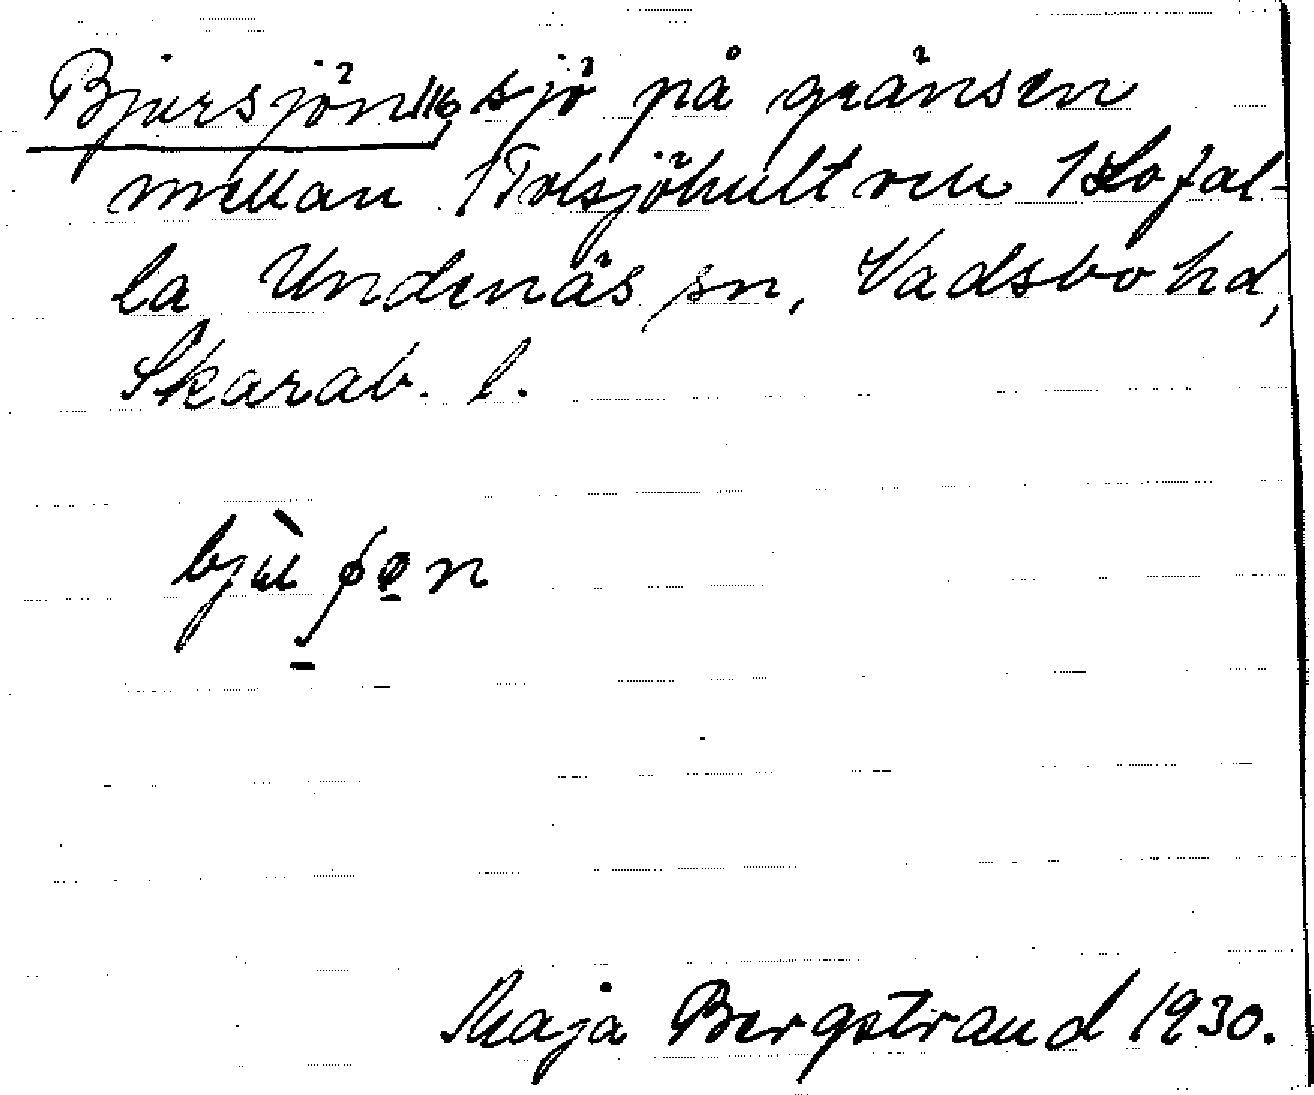 Bjursjön 116, sjö på gränsen
mellan 1 Tolsjöhult och 1 Lofal-
la Undenäs sn, Vadsbo hd,
Skarab. l.
Maja Bergstrand 1930.